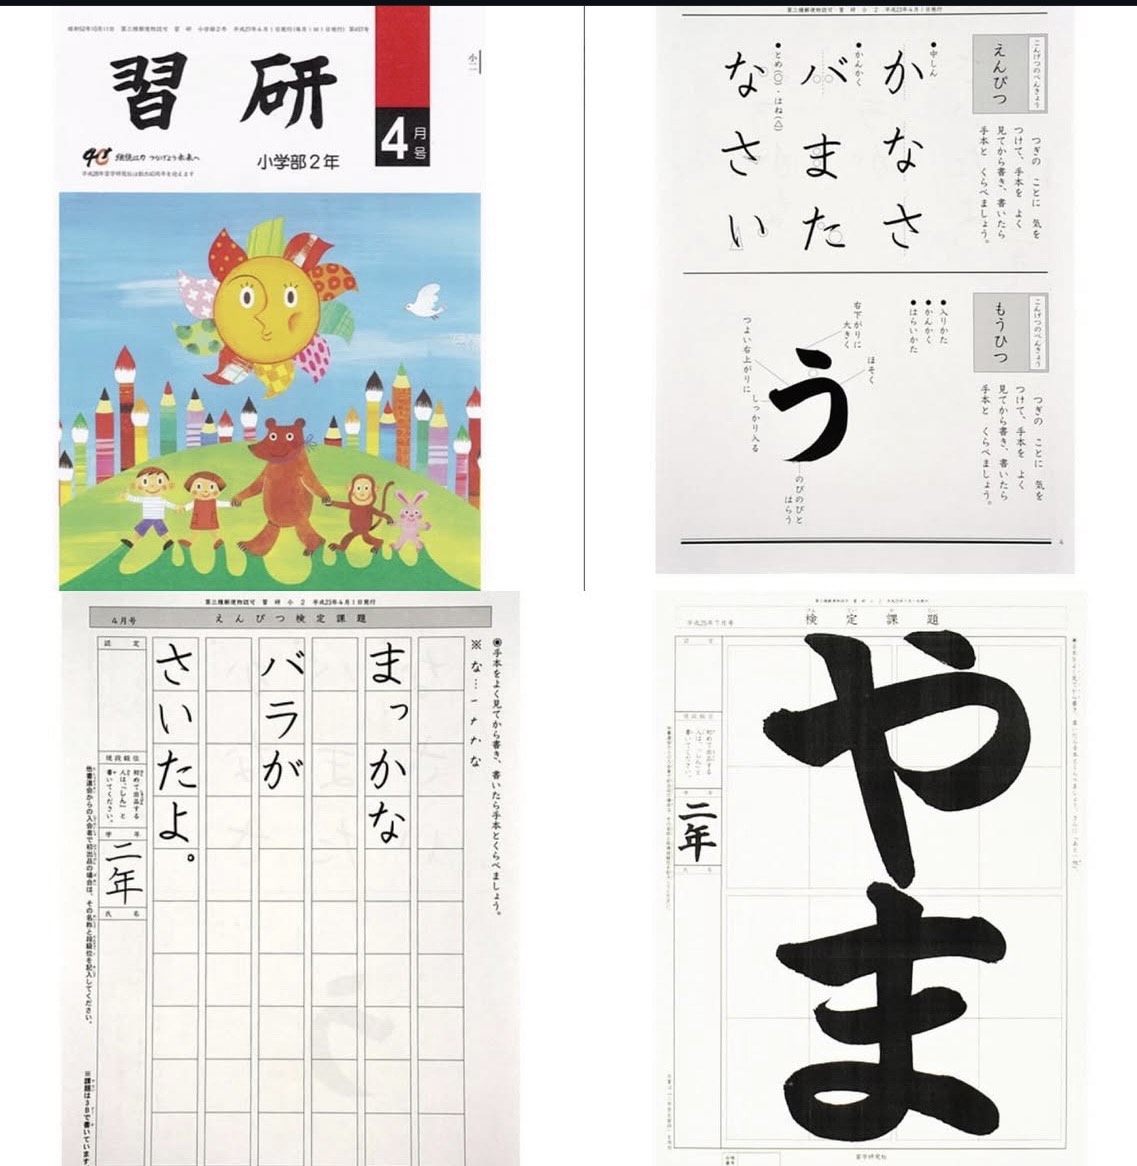 第三種郵便物認可 習 研 小学部2年 平成23年4月1日発行(毎月1回1日発行)
小二
習 研
4月号
継続は力 つなげよう未来へ
小学部2年
第三種郵便物認可 習 研 小 2 平成23年4月1日発行
こんげつのべんきょう
えんぴつ
つぎの ことに 気を
つけて、手本を よく
見てから書き、書いたら
手本と くらべましょう。
●中しん
かなさ
●かんかく
バまた
●とめ(○)・はね(△)
なさい
こんげつのべんきょう
もうひつ
つぎの ことに 気を
つけて、手本を よく
見てから書き、書いたら
手本と くらべましょう。
●入りかた
●かんかく
●はらいかた
ほそく
右下がりに
大きく
う
つよい右上がりに
しっかり入る
のびのびと
はらう
第三種郵便物認可 習 研 小 2 平成23年4月1日発行
4月号
えんぴつ検定課題
◉手本をよく見てから書き、書いたら手本とくらべましょう。
※ な…
まっかな
バラが
さいたよ。
認 定
現段級位
初めて出品する
人は、「しん」と
書いてください。
学 年
二年
氏 名
他書道会からの入会者で初出品の場合は、その名称と段級位を記入してください。
※課題は3Bで書いています
平成25年7月号
検定課題
やま
認 定
現段級位
初めて出品する
人は、「しん」と
書いてください。
学 年
二年
氏 名
習字研究社